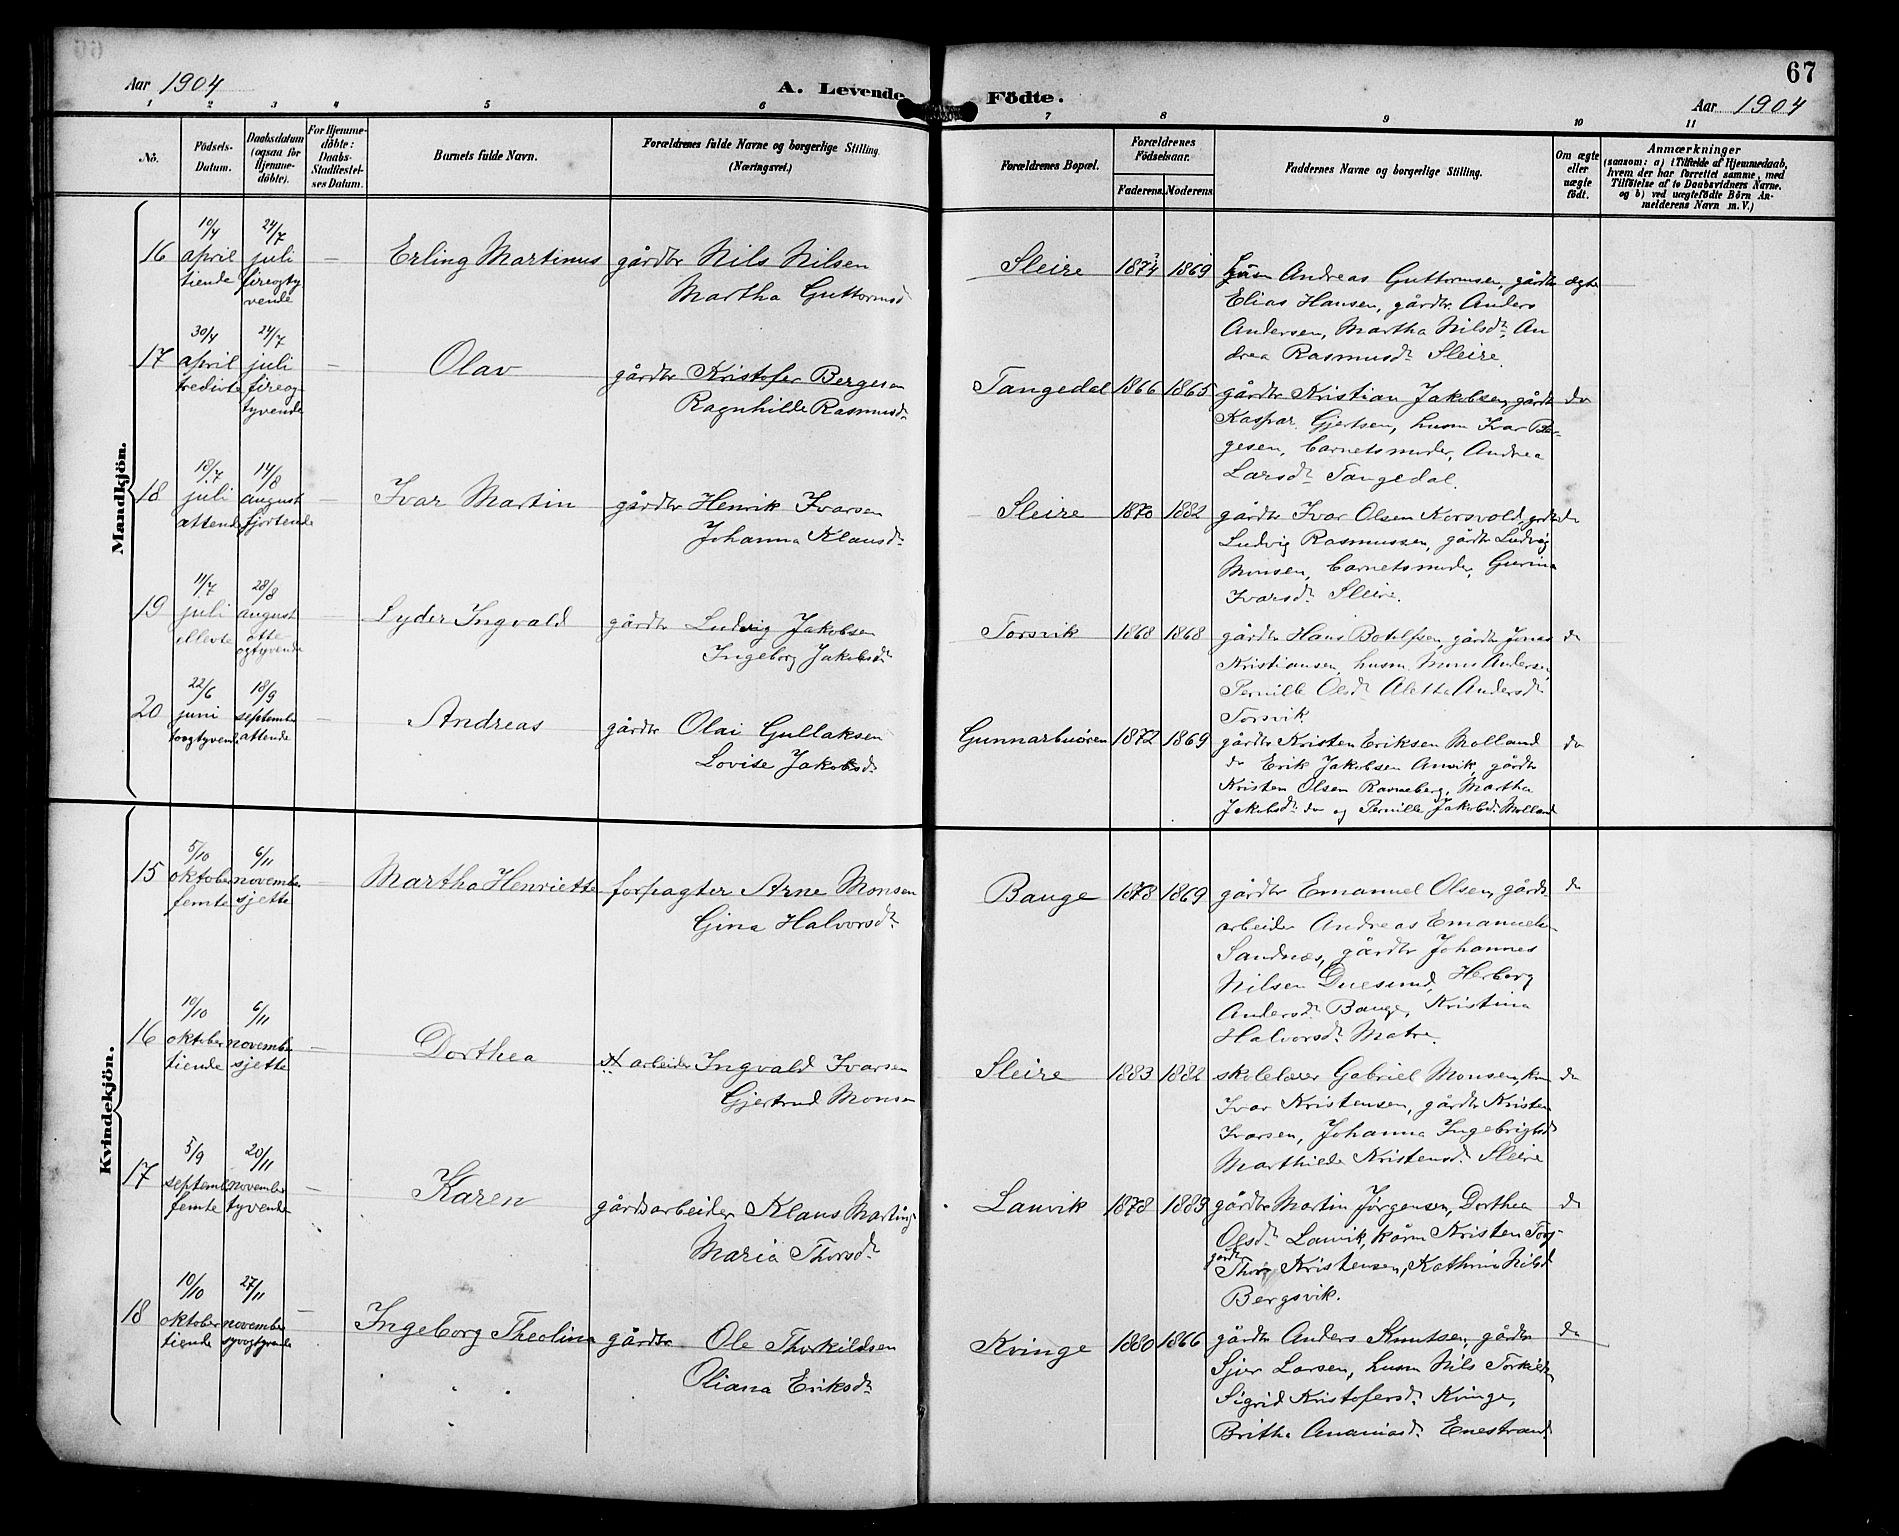 Aar 1904
A. Levende
1 2 3 4 5 6
No.
Födsels-
Datum.
Daabsdatum
(ogsaa for
Hjemme-
döbte).
For Hjemme-
döbte:
Daabs-
Stadfæstel-
ses Datum.
Barnets fulde Navn.
Forældrenes fulde Navne og borgerlige Stilling
(Næringsvei.)
Mandkjön.
16 10/4 april tiende
24/7 juli fireogty
vende
-
Erling Martinus
gårdbr Nils Nilsen
Martha Guttormsd.
17 30/4 april tredivte
24/7 juli fireog
tyvende
-
Olav
gårdbr Kristofer Bergesen
Ragnhilde Rasmusd.
18 18/7 juli attende
14/8 august fjortende
-
Ivar Martin
gårdbr Henrik Ivarsen
Johanna Klausd.
19 11/7 juli ellevte
28/8 august otte
ogtyvende
-
Lyder Ingvald
gårdbr Ludvig Jakobsen
Ingeborg Jakobsd.
20 22/6 juni toogtyvende
18/9 september attende
-
Andreas
gårdbr Olai Gullaksen
Lovise Jakobsd.
Kvindekjön.
15 5/10 oktober femte
6/11 november sjette
Martha Henriette
forpagter Arne Monsen
Gina Halvorsd.
16 10/10 oktober tiende
6/11 november sjette
-
Dorthea
arbeider Ingvald Ivarsen
Gjertrud Monsen
17 5/9 septemb femte
20/11 november tyvende
-
Karen
gårdsarbeider Klaus Martins
Maria Thorsd.
18 10/10 oktober tiende
27/11 november syvogtyvende
-
Ingeborg Theolina
gårdbr Ole Thorkildsen
Oliana Eriksd.
67
Födte.
Aar 1904
7 8 9 10 11
Forældrenes Bopæl.
Forældrenes
Födselsaar.
Faderens. Moderens.
Faddernes Navne og borgerlige Stilling.
Om ægte
eller
uægte
födt.
Anmærkninger
(saasom: a) i Tilfælde af Hjemmedaab,
hvem der har forrettet samme, med
Tilföielse af to Daabsvidners Navne.
og b) ved uægtefödte Börn An-
melderens Navn m. V.)
Sleire 1874 1869
Andreas Guttormsen, gårdbr ægte
Elias Hansen, gårdbr. Anders
Andersen, Martha Nilsd. An
drea Rasmusd. Sleire
Tangedal 1866 1865
gårdbr Kristian Jakobsen, gårdbr do
Kaspar Gjertsen, husm Ivar Ber-
gesen, barnets moder, Andrea
Larsd. Tangedal.
Sleire 1870 1882
gårdbr Ivar Olsen Korsvold, gårdbr do
Ludvig Rasmussen, gårdbr Ludvig
Monsen, barnets moder, Gurina
Ivarsd. Sleire.
Torsvik 1868 1868
gårdbr Hans Botolfsen, gårdbr Jonas do
Kristiansen, husm. Mons Andersen
Pernille Olsd Aletta Andersd.
Torsvik
Gunnarbuören 1872 1869
gårdbr Kristen Eriksen Molland do
do Erik Jakobsen Anvik, gårdbr
Kristen Olsen Ravneberg, Martha
Jakobsd. do og Pernille Jakobsd. Molland
Bauge 1873 1869
gårdbr Emanuel Olsen, gårds do
arbeider Andreas Emanuels
Sandnæs, gårdbr Johannes
Nilsen Duesund, Herborg
Andersd. Bauge, Kristina
Halvorsd. Matre.
Sleire 1883 1882
skolelærer Gabriel Monsen, do
Ivar Kristensen, gårdbr Kristen
Ivarsen, Johanna Ingebrigtsd.
Marthilde Kristensd. Sleire
Lauvik 1878 1883
gårdbr Martin Jørgensen, Dorthea do
Olsd. Lauvik, kårm Kristen
gårdbr Thore Kristensen, Kathrine Nilsd
Bergsvik.
Kvinge 1880 1866
gårdbr Anders Knutsen, gårdbr do
Sjur Larsen, husm Nils Torkilds
Sigrid Kristofersd. Kvinge,
Britha Ananiasd. Enestrand.